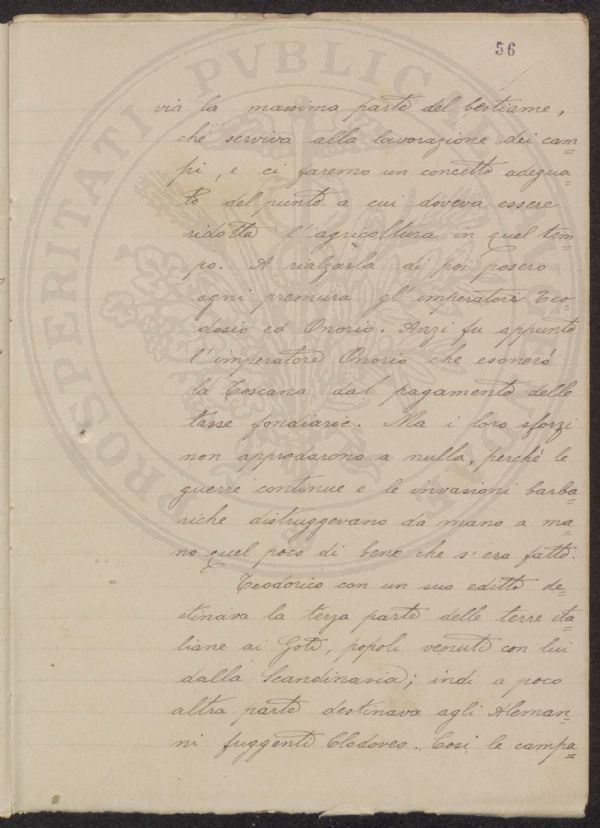 56
via la massima parte del bestiame,
che serviva alla lavorazione dei cam=
pi, e ci faremo un concetto adegua=
to del punto a cui doveva essere
ridotta l'agricoltura in quel tem=
po. A rialzarla di poi posero
ogni premura gl'imperatori Teo=
dosio ed Onorio. Anzi fu appunto
l'imperatore Onorio che esonerò
la Toscana dal pagamento delle
tasse fondiarie. Ma i loro sforzi
non approdarono a nulla, perchè le
guerre continue e le invasioni barba=
riche distruggevano da mano a ma=
no quel poco di bene che s'era fatto.
Teodorico con un suo editto de=
stinava la terza parte delle terre ita=
liane ai Goti, popoli venuti con lui
dalla Scandinavia; indi a poco
altra parte destinava agli Aleman=
ni fuggenti Clodoveo. Così le campa=
PROSPERITATI PVBLIC